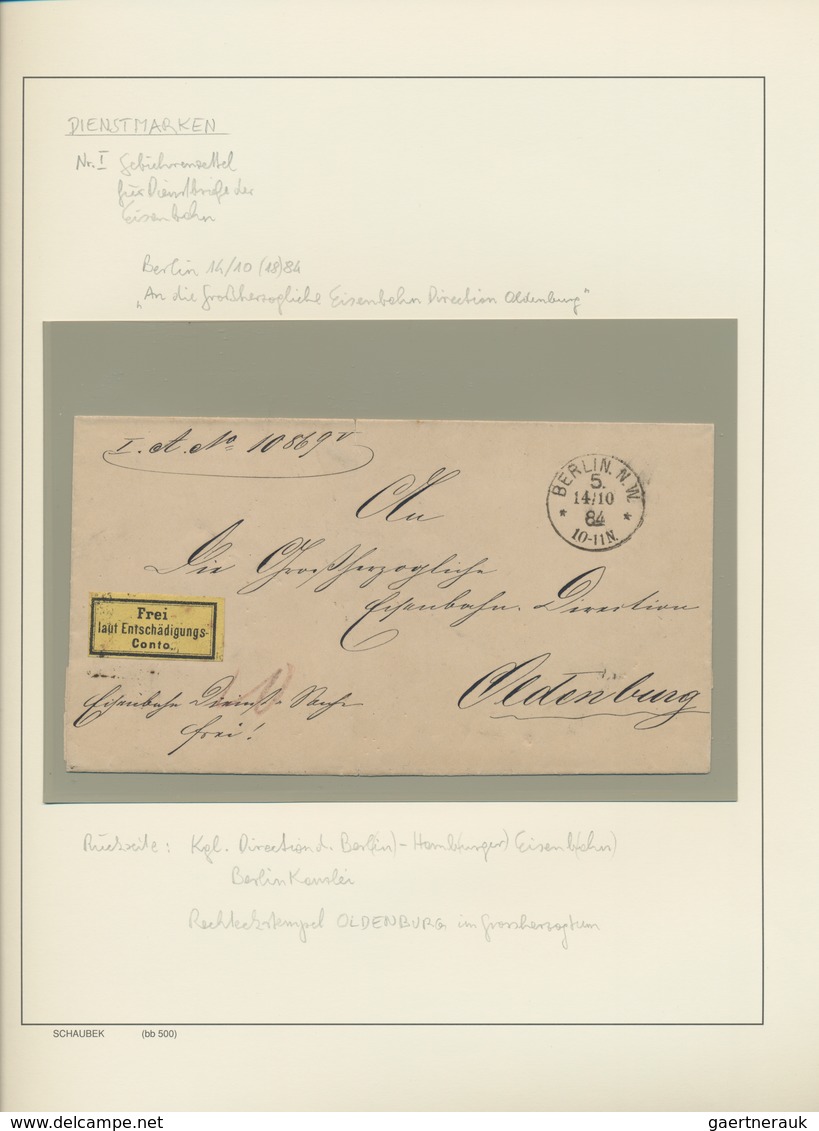 DIENSTMARKEN
Nr. I Gebührenzettel
für Dienstbriefe der
Eisenbahn
Berlin 14/10 (18)84
„An die Großherzogliche Eisenbahn Direction Oldenburg"
I. A. No 10869
BERLIN. N.W.
5.
14/10
84
* *
10-11N.
An
Die Großherzogliche
Eisenbahn. Direction
Oldenburg
Frei
laut Entschädigungs-
Conto.
Eisenbahn Dienst-Sache
frei!
Rückseite: Kgl. Direction d. Berl(in)-Hamb(urger) Eisenb(ahn)
Berlin Kanzlei
Rechteckstempel OLDENBURG im Grossherzogtum
SCHAUBEK (bb 500)
gaertnerauk